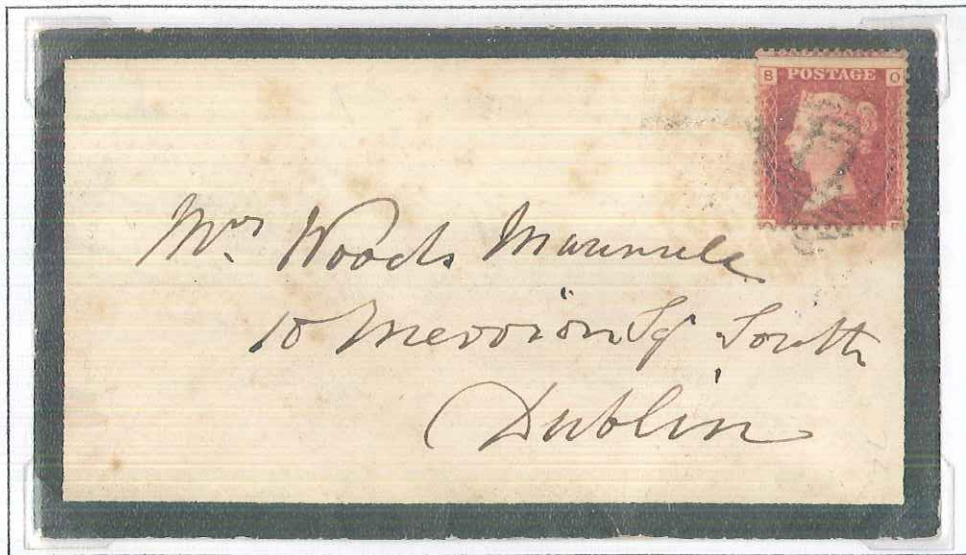 B POSTAGE O
Mrs. Woods Maunsell
10 Merrion Sq South
Dublin